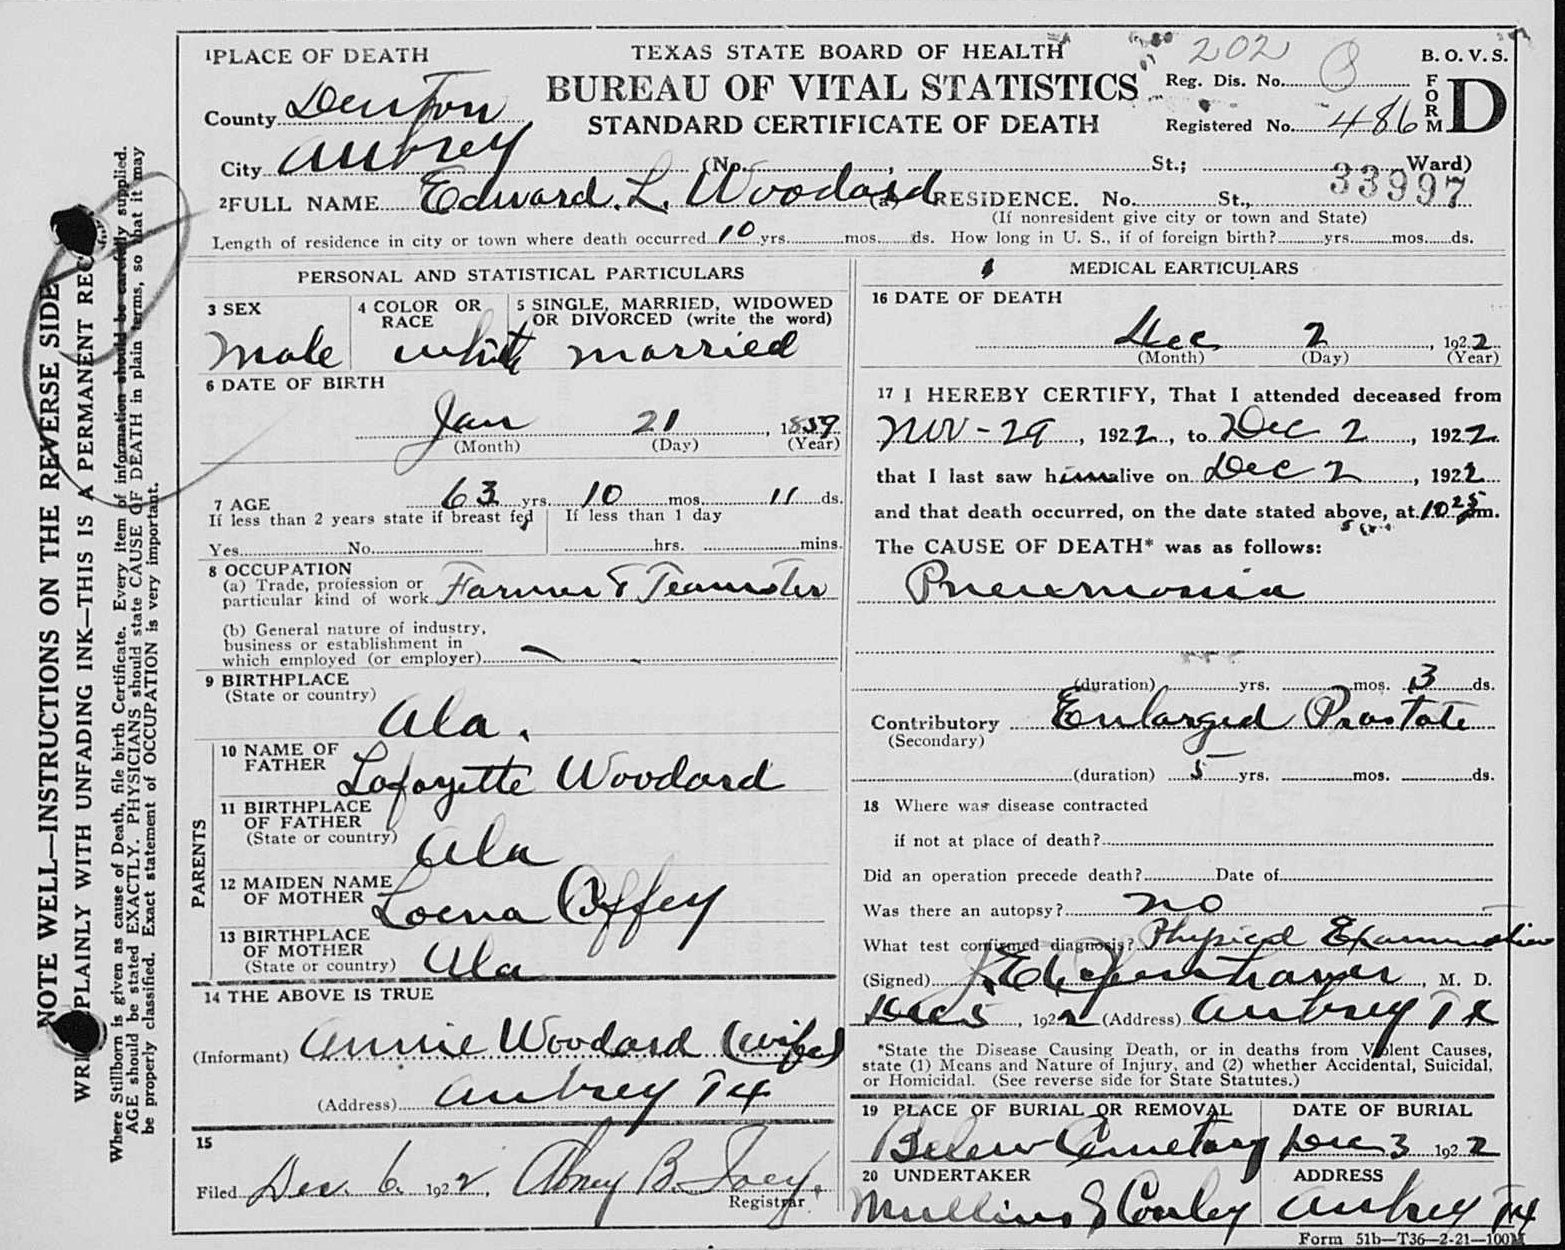 TEXAS STATE BOARD OF HEALTH
BUREAU OF VITAL STATISTICS
STANDARD CERTIFICATE OF DEATH
202
Reg. Dis. No.
Registered No. 486
B. O. V. S.
FORM D
33997
1 PLACE OF DEATH
County Denton
City Aubrey (No. ; St.; Ward)
2 FULL NAME Edward. L. Woodard RESIDENCE. No. St.,
(If nonresident give city or town and State)
Length of residence in city or town where death occurred 10 yrs. mos. ds. How long in U. S., if of foreign birth? yrs. mos. ds.
PERSONAL AND STATISTICAL PARTICULARS
3 SEX
Male
4 COLOR OR RACE
white
5 SINGLE, MARRIED, WIDOWED
OR DIVORCED (write the word)
married
6 DATE OF BIRTH
Jan 21, 1859
(Month) (Day) (Year)
7 AGE 63 yrs. 10 mos. 11 ds.
If less than 2 years state if breast fed If less than 1 day
Yes No hrs. mins.
8 OCCUPATION
(a) Trade, profession or
particular kind of work Farmer & Teamster
(b) General nature of industry,
business or establishment in
which employed (or employer)
9 BIRTHPLACE
(State or country)
Ala.
PARENTS
10 NAME OF
FATHER Lafayette Woodard
11 BIRTHPLACE
OF FATHER
(State or country) Ala
12 MAIDEN NAME
OF MOTHER Loena Coffey
13 BIRTHPLACE
OF MOTHER
(State or country) Ala
14 THE ABOVE IS TRUE
(Informant) Annie Woodard (wife)
(Address) Aubrey Tx
15
Filed Dec. 6. 1922,
Registrar
MEDICAL EARTICULARS
16 DATE OF DEATH
Dec 2, 1922
(Month) (Day) (Year)
17 I HEREBY CERTIFY, That I attended deceased from
Nov-29, 1922, to Dec 2, 1922
that I last saw him alive on Dec 2, 1922
and that death occurred, on the date stated above, at 10 25 m.
The CAUSE OF DEATH* was as follows:
Pneumonia
(duration) yrs. mos. 3 ds.
Contributory Enlarged Prostate
(Secondary)
(duration) 5 yrs. mos. ds.
18 Where was disease contracted
if not at place of death?
Did an operation precede death? Date of
Was there an autopsy? no
What test confirmed diagnosis? Physical Examination
(Signed) , M. D.
Dec 5, 1922 (Address) Aubrey Tx
*State the Disease Causing Death, or in deaths from Violent Causes,
state (1) Means and Nature of Injury, and (2) whether Accidental, Suicidal,
or Homicidal. (See reverse side for State Statutes.)
19 PLACE OF BURIAL OR REMOVAL
Belew Cemetery
DATE OF BURIAL
Dec 3 1922
20 UNDERTAKER
Mullins & Conley
ADDRESS
Aubrey Tx
Form 51b—T36—2-21—100M
NOTE WELL—INSTRUCTIONS ON THE REVERSE SIDE
PLAINLY WITH UNFADING INK—THIS IS A PERMANENT
Where Stillborn is given as cause of Death, file birth Certificate. Every item of information should be carefully supplied.
AGE should be stated EXACTLY. PHYSICIANS should state CAUSE OF DEATH in plain terms, so that it may
be properly classified. Exact statement of OCCUPATION is very important.